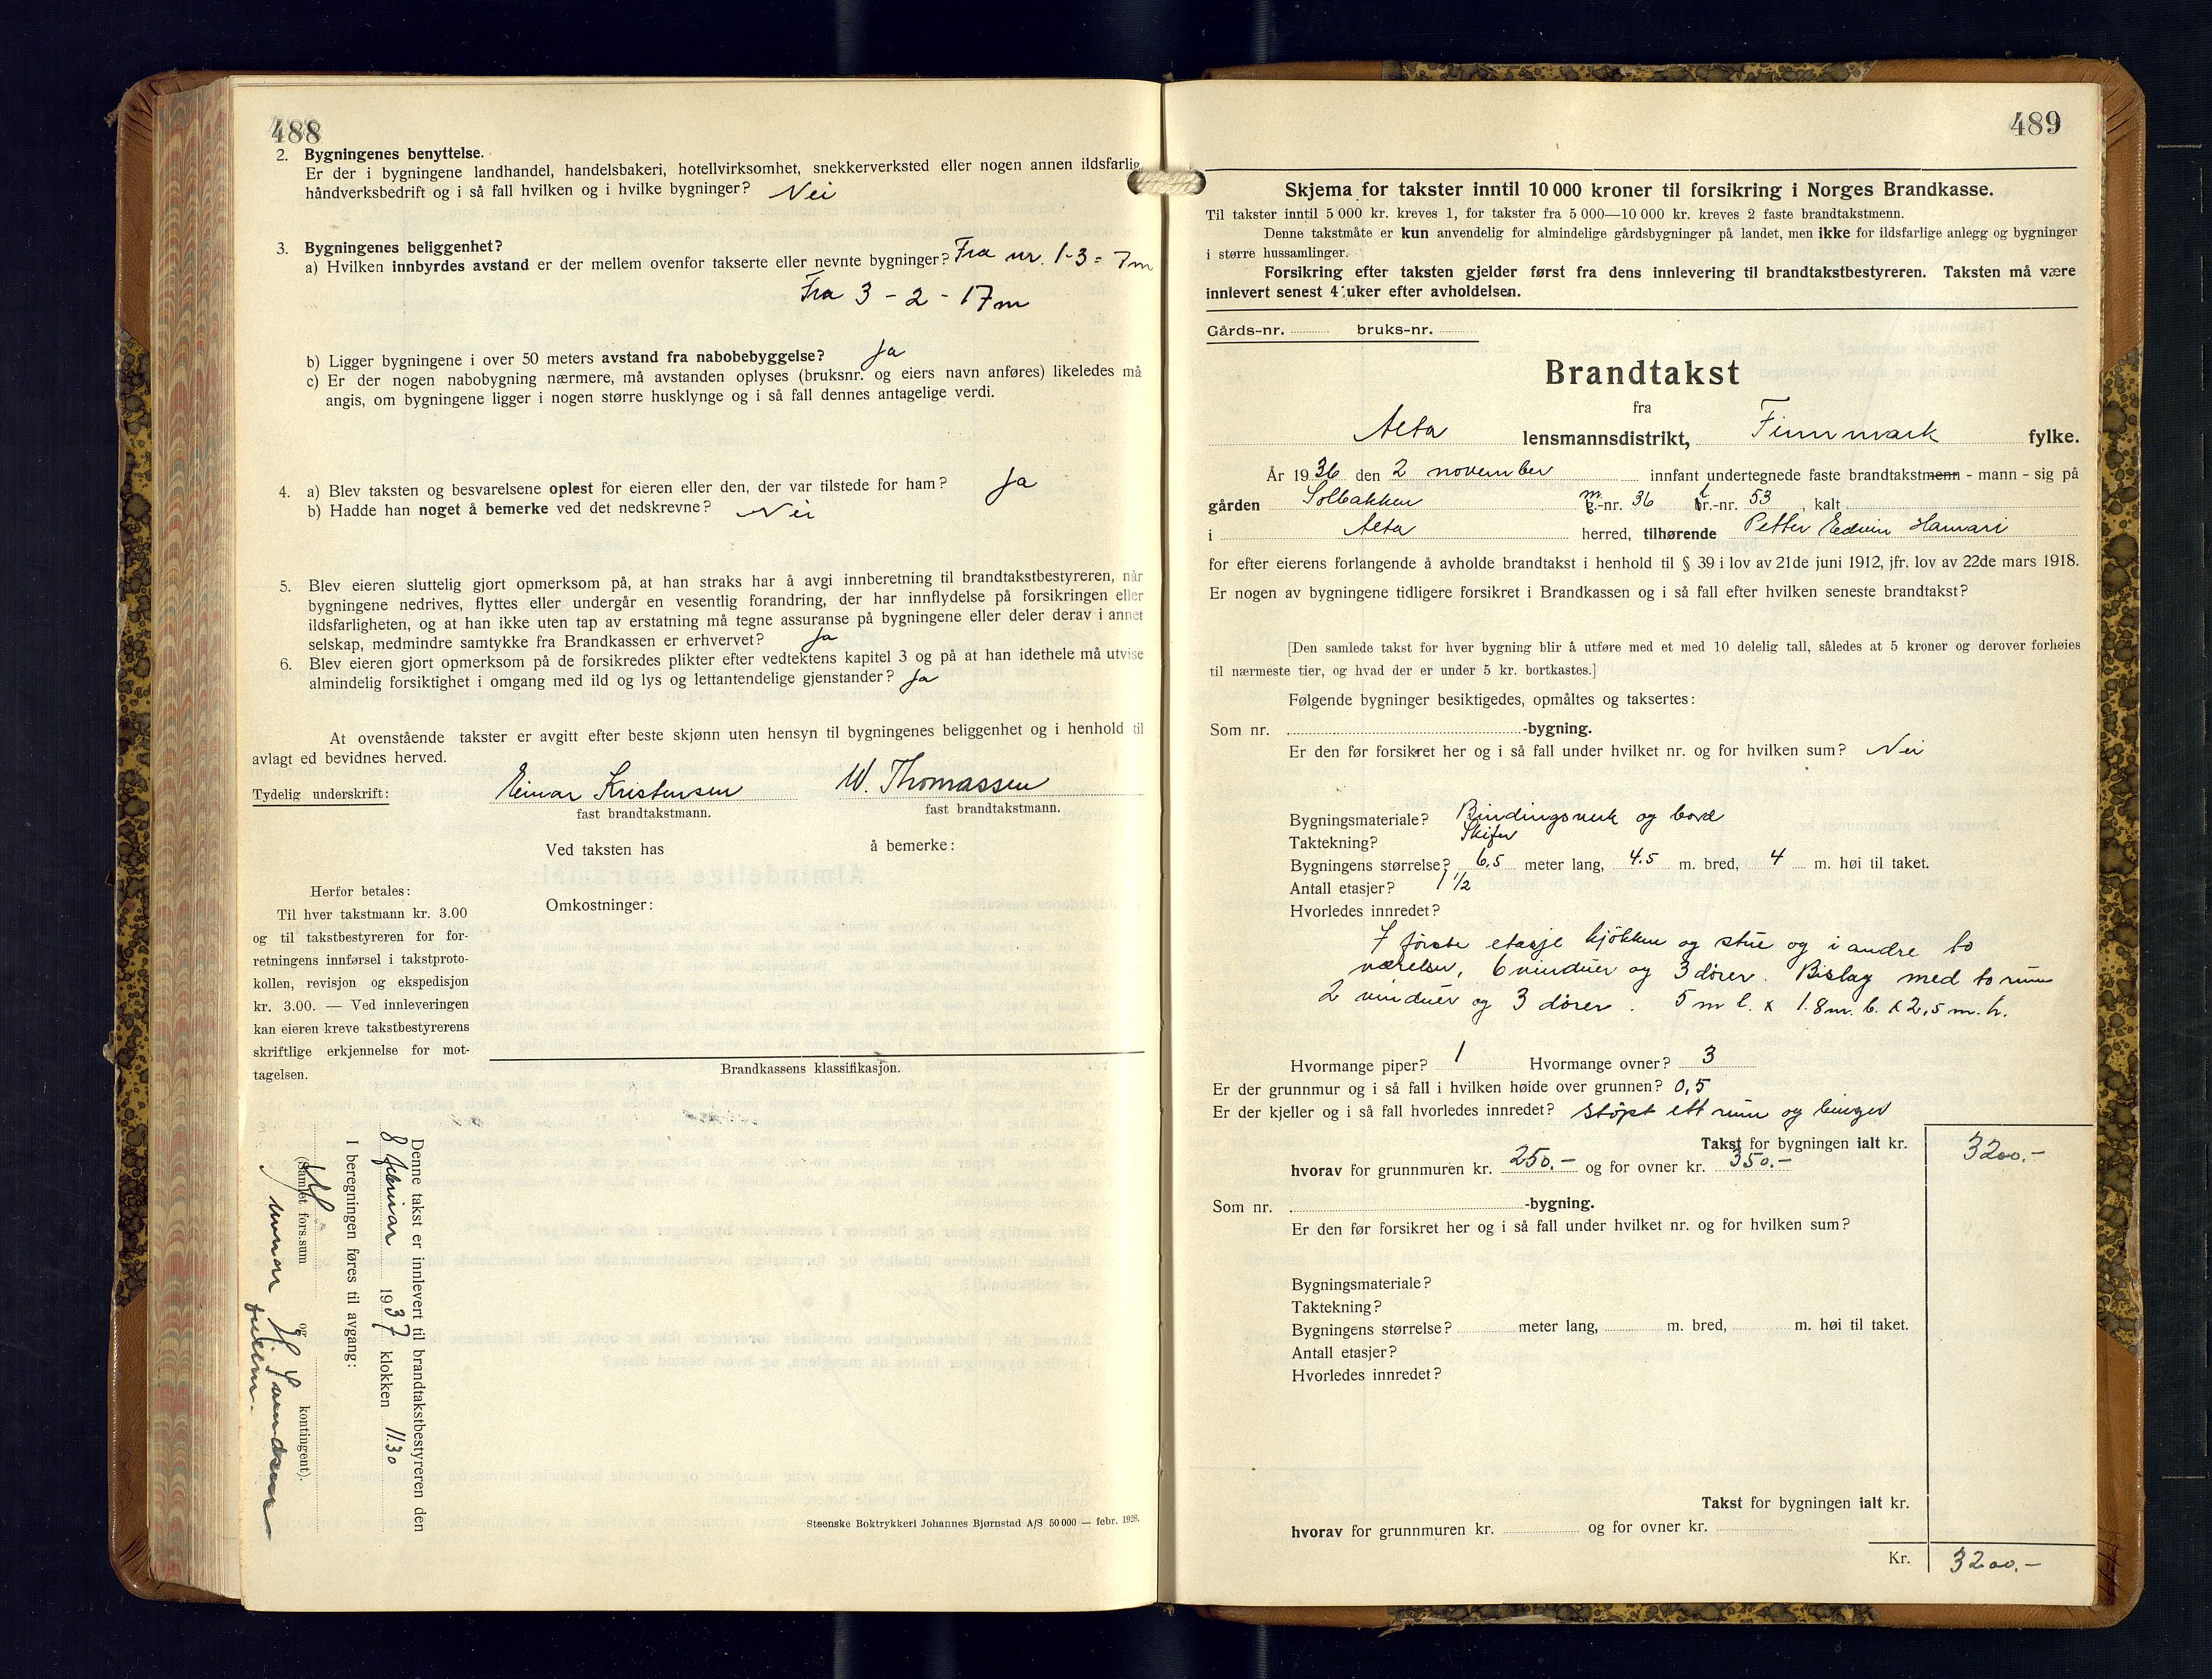 488
2. Bygningenes benyttelse.
Er der i bygningene landhandel, handelsbakeri, hotellvirksomhet, snekkerverksted eller nogen annen ildsfarlig
håndverksbedrift og i så fall hvilken og i hvilke bygninger? Nei
3. Bygningenes beliggenhet?
a) Hvilken innbyrdes avstand er der mellem ovenfor takserte eller nevnte bygninger? Fra nr. 1-3 = 7m
Fra 3 - 2 - 17m
b) Ligger bygningene i over 50 meters avstand fra nabobebyggelse? Ja
c) Er der nogen nabobygning nærmere, må avstanden oplyses (bruksnr. og eiers navn anføres) likeledes må
angis, om bygningene ligger i nogen større husklynge og i så fall dennes antagelige verdi.
4. a) Blev taksten og besvarelsene oplest for eieren eller den, der var tilstede for ham? Ja
b) Hadde han noget å bemerke ved det nedskrevne? Nei
5. Blev eieren sluttelig gjort opmerksom på, at han straks har å avgi innberetning til brandtakstbestyreren, når
bygningene nedrives, flyttes eller undergår en vesentlig forandring, der har innflydelse på forsikringen eller
ildsfarligheten, og at han ikke uten tap av erstatning må tegne assuranse på bygningene eller deler derav i annet
selskap, medmindre samtykke fra Brandkassen er erhvervet? Ja
6. Blev eieren gjort opmerksom på de forsikredes plikter efter vedtektens kapitel 3 og på at han idethele må utvise
almindelig forsiktighet i omgang med ild og lys og lettantendelige gjenstander? Ja
At ovenstående takster er avgitt efter beste skjønn uten hensyn til bygningenes beliggenhet og i henhold til
avlagt ed bevidnes herved.
Tydelig underskrift: Einar Kristensen W. Thomassen
fast brandtakstmann. fast brandtakstmann.
Ved taksten has å bemerke:
Herfor betales:
Til hver takstmann kr. 3.00
og til takstbestyreren for for-
retningens innførsel i takstproto-
kollen, revisjon og ekspedisjon
kr. 3.00. — Ved innleveringen
kan eieren kreve takstbestyrerens
skriftlige erkjennelse for mot-
tagelsen.
Omkostninger:
Brandkassens klassifikasjon.
Denne takst er innlevert til brandtakstbestyreren den
8 februar 1937 klokken 11.30
I beregningen føres til avgang:
(Samlet fors.sum og kontingent).
Steenske Boktrykkeri Johannes Bjørnstad A/S 50 000 — febr. 1928.
489
Skjema for takster inntil 10 000 kroner til forsikring i Norges Brandkasse.
Til takster inntil 5 000 kr. kreves 1, for takster fra 5 000—10 000 kr. kreves 2 faste brandtakstmenn.
Denne takstmåte er kun anvendelig for almindelige gårdsbygninger på landet, men ikke for ildsfarlige anlegg og bygninger
i større hussamlinger.
Forsikring efter taksten gjelder først fra dens innlevering til brandtakstbestyreren. Taksten må være
innlevert senest 4 uker efter avholdelsen.
Gårds-nr. bruks-nr.
Brandtakst
fra
Alta lensmannsdistrikt, Finnmark fylke.
År 1936 den 2 november innfant undertegnede faste brandtakstmenn - mann - sig på
gården Solbakken m.-nr. 36 l.-nr. 53, kalt
i Alta herred, tilhørende Petter Edvin Hamari
for efter eierens forlangende å avholde brandtakst i henhold til § 39 i lov av 21de juni 1912, jfr. lov av 22de mars 1918.
Er nogen av bygningene tidligere forsikret i Brandkassen og i så fall efter hvilken seneste brandtakst?
[Den samlede takst for hver bygning blir å utføre med et med 10 delelig tall, således at 5 kroner og derover forhøies
til nærmeste tier, og hvad der er under 5 kr. bortkastes.]
Følgende bygninger besiktigedes, opmåltes og taksertes:
Som nr. -bygning.
Er den før forsikret her og i så fall under hvilket nr. og for hvilken sum? Nei
Bygningsmateriale? Bindingsverk og bord
Taktekning? Skifer
Bygningens størrelse? 6,5 meter lang, 4.5 m. bred, 4 m. høi til taket.
Antall etasjer? 1 1/2
Hvorledes innredet?
I første etasje kjøkken og stue og i andre to
værelser, 6 vinduer og 3 dører. Bislag med to rum
2 vinduer og 3 dører. 5 m l. x 1.8 m. b. x 2,5 m. h.
Hvormange piper? 1 Hvormange ovner? 3
Er der grunnmur og i så fall i hvilken høide over grunnen? 0,5
Er der kjeller og i så fall hvorledes innredet? støpt ett rum og binger
Takst for bygningen ialt kr. 3200.-
hvorav for grunnmuren kr. 250.- og for ovner kr. 350.-
Som nr. -bygning.
Er den før forsikret her og i så fall under hvilket nr. og for hvilken sum?
Bygningsmateriale?
Taktekning?
Bygningens størrelse? meter lang, m. bred, m. høi til taket.
Antall etasjer?
Hvorledes innredet?
Takst for bygningen ialt kr.
hvorav for grunnmuren kr. og for ovner kr.
Kr. 3200.-